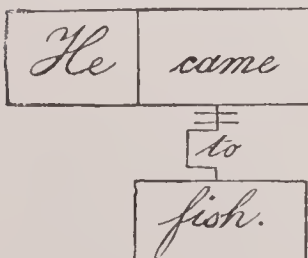 He came
to
fish.